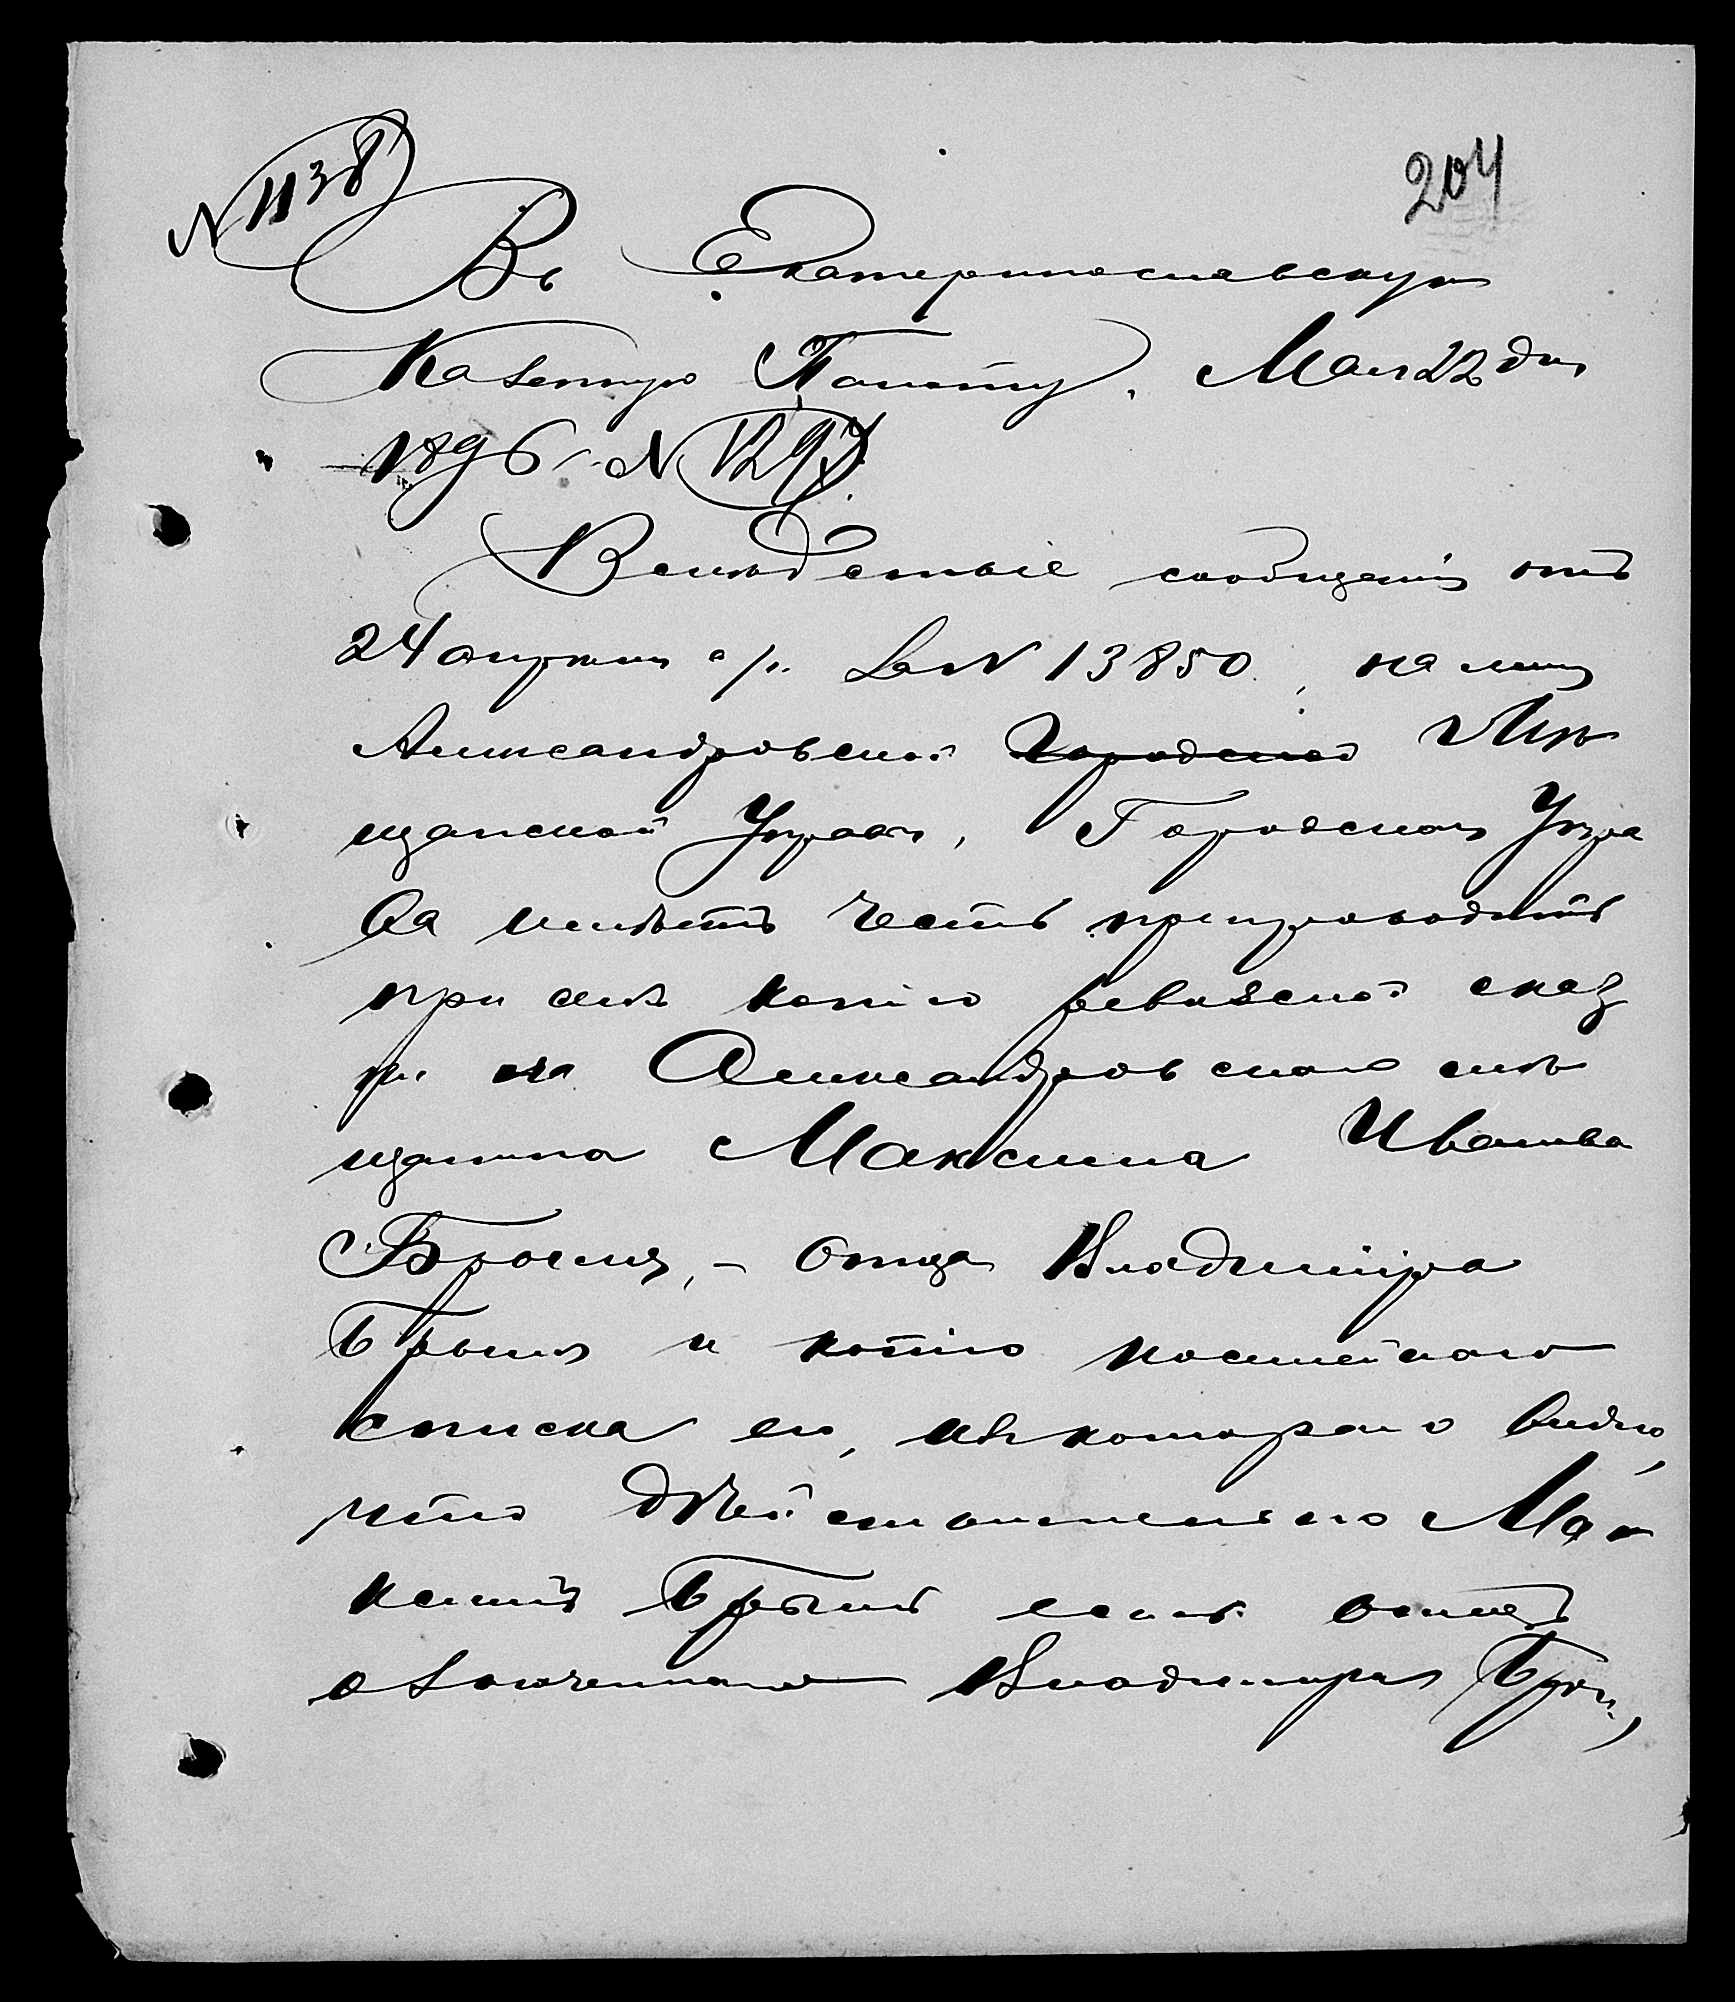 204
N 1138
Въ Екатеринославскую
Казенную Палату. Мая 22 дня
1896 г. N 1297
Вслѣдствіе сообщенія отъ
24 апрѣля с/г. за N 13850, на имя
Александровской Городской Мѣ
щанской Управы, Городская Упра
ва имѣетъ честь препроводить
при семъ копію ревизской сказ
ки на Александровскаго мѣ
щанина Максима Иванова
отца Владиміра
и копію посемейнаго
списка его, изъ котораго видно,
что дѣйствительно Ма
ксимъ есть отецъ
означеннаго Владиміра